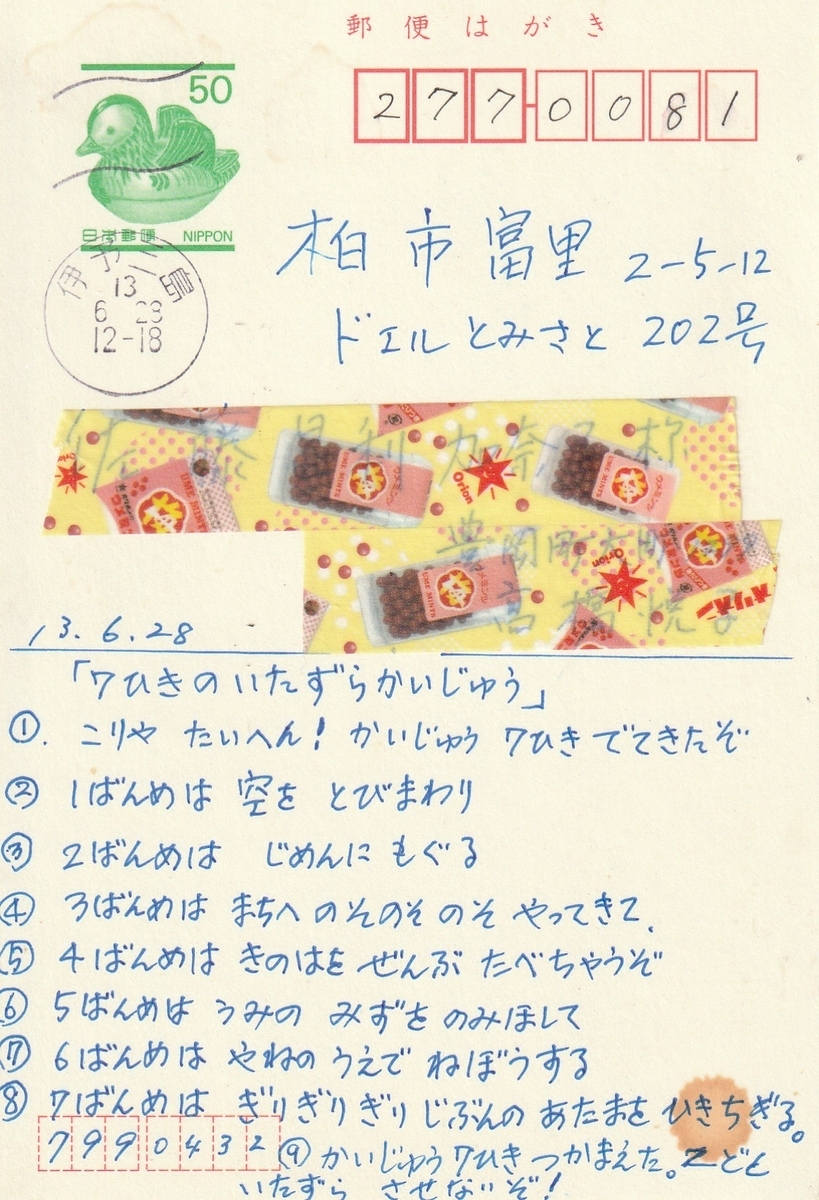 郵便はがき
50
日本郵便 NIPPON
2770081
伊予三島
13
6 28
12-18
柏市富里 2-5-12
ドエルとみさと 202号
13.6.28
「7ひきのいたずらかいじゅう」
①. こりゃ たいへん! かいじゅう 7ひき でてきたぞ
② 1ばんめは 空を とびまわり
③ 2ばんめは じめんに もぐる
④ 3ばんめは まちへ のそのそ のそ やってきて、
⑤ 4ばんめは きのはを ぜんぶ たべちゃうぞ
⑥ 5ばんめは うみの みずを のみほして
⑦ 6ばんめは やねの うえで ねぼうする
⑧ 7ばんめは ぎりぎりぎり じぶんの あたまを ひきちぎる。
7990432
⑨ かいじゅう 7ひき つかまえた。二どと
いたずら させないぞ!
Orion
UME MINTS
Orion
UME MINTS
Orion
オリオン